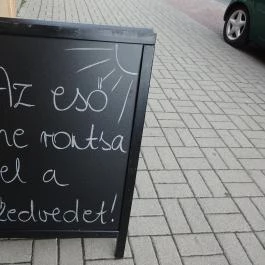 Az eső
ne rontsa
el a
kedvedet!